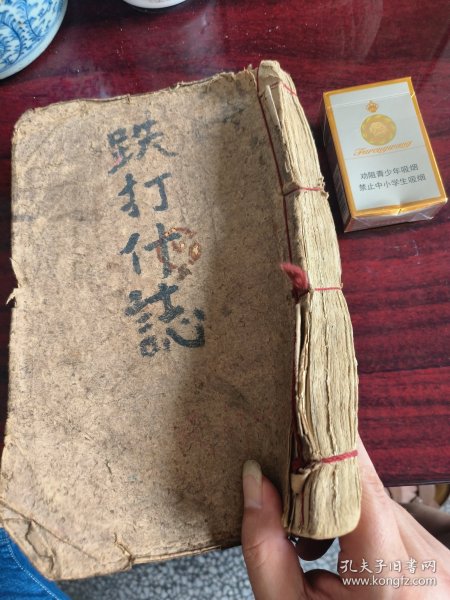 跌打什誌
Furongwang
劝阻青少年吸烟
禁止中小学生吸烟
孔夫子旧书网
www.kongfz.com